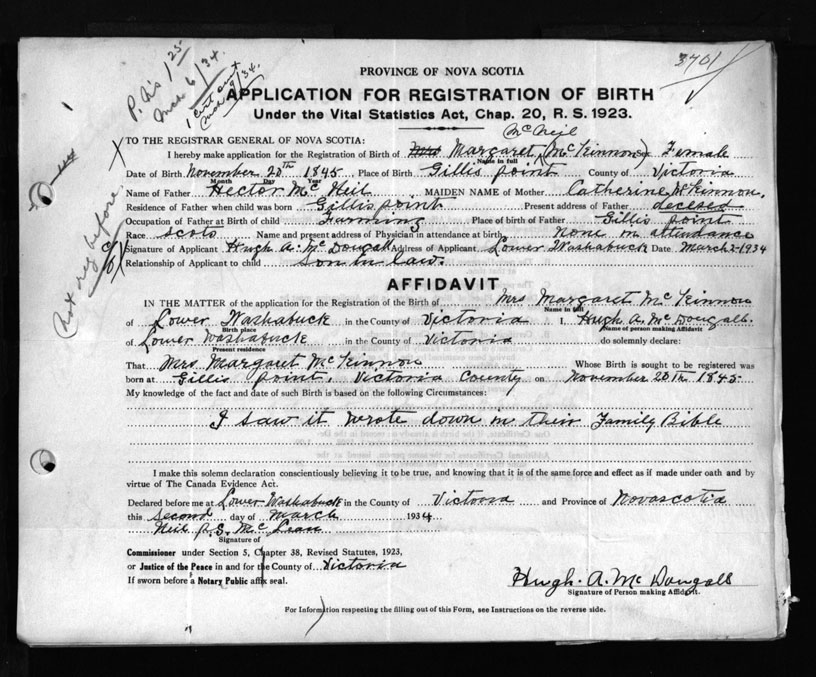 P.O's 1 25
Mar 6/34.
1 cert sent
Mar 9/34.
3701
PROVINCE OF NOVA SCOTIA
APPLICATION FOR REGISTRATION OF BIRTH
Under the Vital Statistics Act, Chap. 20, R. S. 1923.
McNeil
TO THE REGISTRAR GENERAL OF NOVA SCOTIA:
I hereby make application for the Registration of Birth of Mrs Margaret (McKinnon) Female
Name in full
Date of Birth November 20th 1845 Place of Birth Gillis point County of Victoria
Month Day Year
Name of Father Hector McNeil MAIDEN NAME of Mother Catherine McKinnon.
Residence of Father when child was born Gillis point Present address of Father decesed
Occupation of Father at Birth of child Farming Place of birth of Father Gillis point
Race scots Name and present address of Physician in attendance at birth None in attendance
Signature of Applicant Hugh A. McDougall Address of Applicant Lower Washabuck Date March 2-1934
Relationship of Applicant to child Son in law.
Not reg before.
AFFIDAVIT
IN THE MATTER of the application for the Registration of the Birth of Mrs Margaret McKinnon
Name in full
of Lower Washabuck in the County of Victoria I, Hugh A. McDougall.
Birth place Name of person making Affidavit
of Lower Washabuck in the County of Victoria do solemnly declare:
Present residence
That Mrs. Margaret McKinnon Whose Birth is sought to be registered was
born at Gillis Point, Victoria County on November 20th 1845
My knowledge of the fact and date of such Birth is based on the following Circumstances:
I saw it wrote down in their Family Bible
I make this solemn declaration conscientiously believing it to be true, and knowing that it is of the same force and effect as if made under oath and by
virtue of The Canada Evidence Act.
Declared before me at Lower Washabuck in the County of Victoria and Province of Novascotia
this Second day of March 1934
Neil P.S. McLean
Signature of
Commissioner under Section 5, Chapter 38, Revised Statutes, 1923,
or Justice of the Peace in and for the County of Victoria
If sworn before a Notary Public affix seal.
Hugh. A. McDougall
Signature of Person making Affidavit.
For Information respecting the filling out of this Form, see Instructions on the reverse side.